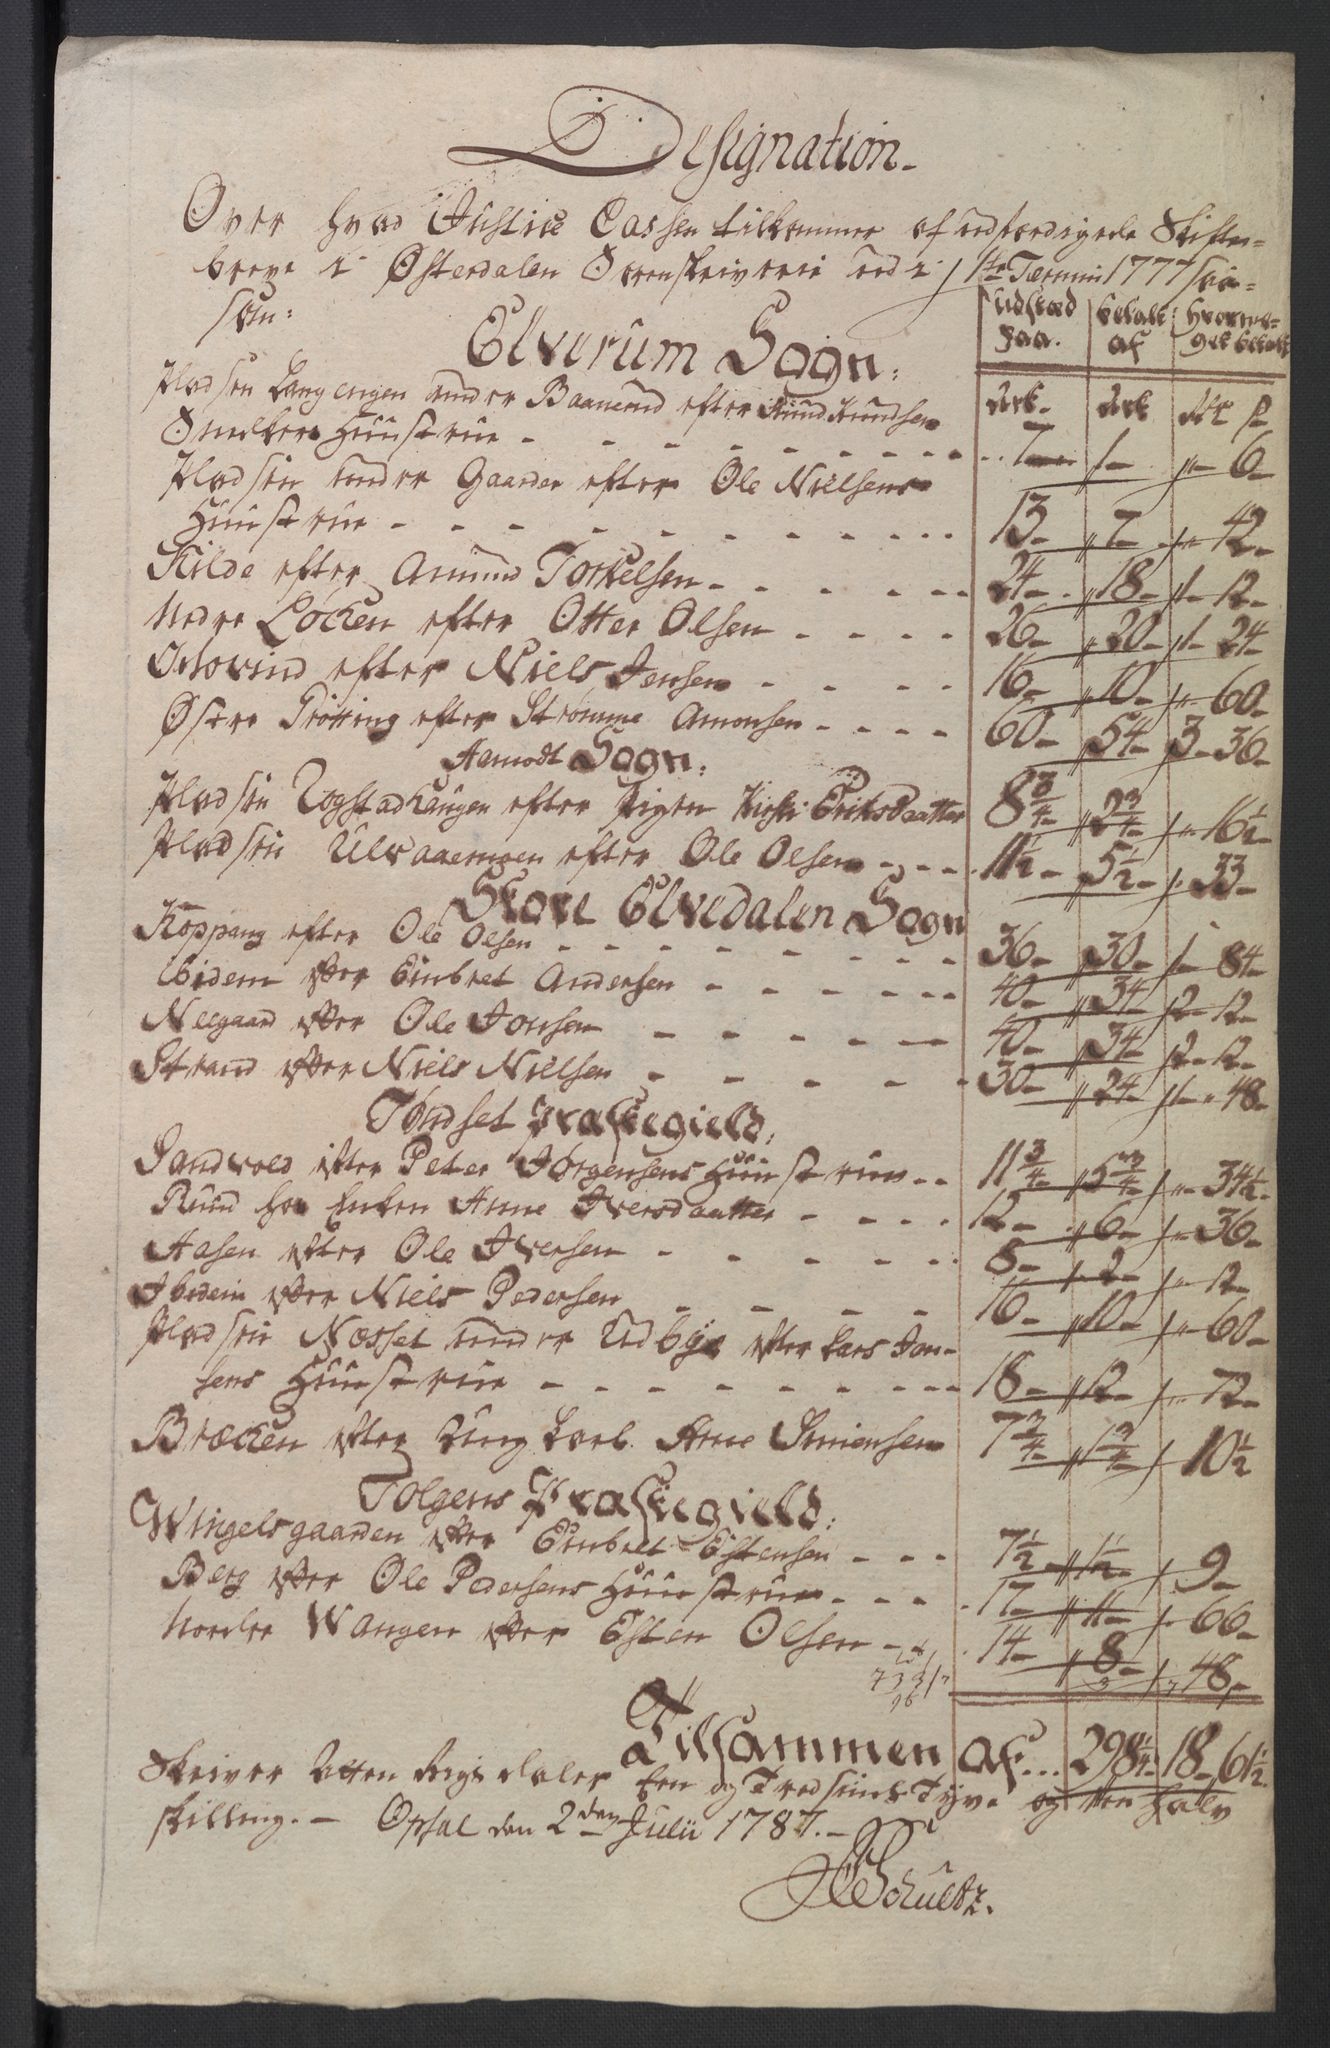 Designation
Over hvad Justice Cassen tilkommer af udferdigede Skifte-
breve i Østerdalens Sorenskriverie udi 1ste Termin 1777 saa-
som:
Udstæd paa. | betalt af | hvormeget betalt
Elverum Sogn:
Ark | Ark | Rdr s
Pladsen Langengen under Baanerud efter Knud Knudsen
Smedkers Huustrue - 7 - 1 - " 6
Pladsen under Gaarder efter Ole Nielsens
Huustrue - 13 - 7 - " 42
Kilde efter Amund Torkelsen - 24 - 18 - 1 - 12
Nedre Løcken efter Otter Olsen - 26 - 20 - 1 - 24
efter Niels Jensen - 16 - 10 - " 60
Østre Piøtting efter Strømme Amonsen - 60 - 54 - 3 - 36
Aamodt Sogn:
Pladsen efter Pigen Kirsti Eriksdaatter 8 3/4 - 2 3/4 - " 16 1/2
Pladsen Ulvaaengen efter Ole Olsen - 11 1/2 - 5 1/2 - 33
Store Elvedalen Sogn
Koppang efter Ole Olsen - 36 - 30 - 1 - 84
Ibidem efter Einbret Andersen - 40 - 34 - 2 - 12
Neegaard efter Ole Jonsen - 40 - 34 - 2 - 12
Strand efter Niels Nielsen - 30 - 24 - 1 - 48
Tøndset Præstegield:
Sandvold efter Peter Jørgensens Huustrue - 11 3/4 - 5 3/4 - " 34 1/2
Ruud hos Enken Anne Iversdaatter - 12 - 6 - " 36
Aasen efter Ole Iversen - 8 - 2 - " 12
Ibidem efter Niels Pedersen - 16 - 10 - " 60
Pladsen Næsset under Udbye efter Lars Jon-
sens Huustrue - 18 - 12 - " 72
Bræcken efter Ung Karl Arne Simensen 7 3/4 - 1 3/4 - 10 1/2
Tolgens Præstegield:
Wingelsgaarden efter Einbret Estensen - 7 1/2 - 1 1/2 - 9
Berg efter Ole Pedersens Huustrue - 17 - 11 - 66
Nordre Wangen efter Esten Olsen - 14 - 8 - 48
Tilsammen af 298 1/4 - 18 - 61 1/2
Skriver Atten Rigsdaler Een og Tredsinds Tyve og een halv
skilling. - Opsal den 2den Julii 1787. -
Schultz.